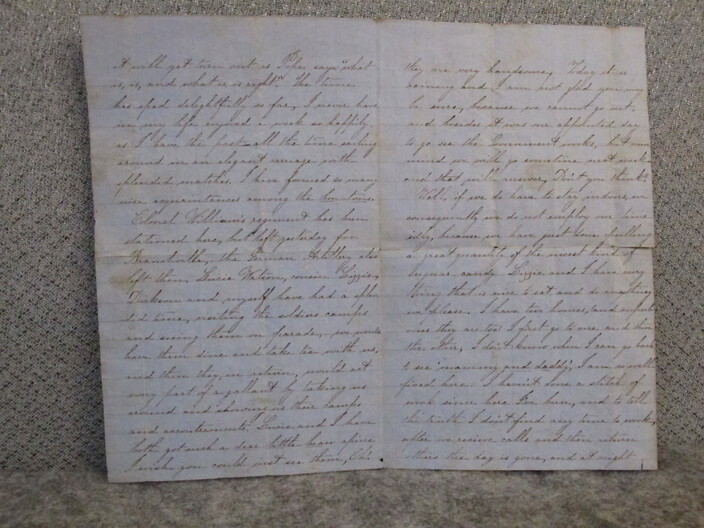 it will yet turn out as Pike says "what
is, is, and what is is right." The time
has sped delightfully so far, I never have
in my life enjoyed a week so happily
as I have the past all the time
around in an elegant carriage with
splendid matches. I have formed so many
nice acquaintances among the
Colonel Williams regiment has been
stationed here, but left yesterday for
the German Artillery also
left them, Watson, cousin Lizzie
Dickson and myself have had a splen
did time, visiting the soldiers camps
and seeing them on parade, we would
have them dine and take tea with us,
and then they, in return, would act
every part of a gallant by taking us
around and showing us their camps
and accoutrements. and I have
both got such a dear little
I wish you could just see them,
they are very handsome, Today it is
raining and I am not glad you may
be sure, because we cannot go out,
and besides it was our appointed day
to go see the Government works, but never
mind we will go sometime next week
and that will answer,
Well, if we do have to stay indoors,
consequently we do not employ our time
idly, because we have just done pulling
a great quantity of the nicest kind of
sugar candy Lizzie and I have every
thing that is nice to eat and do nothing
we please. I have two homes, and
nice they are too I first go to one and then
the other, I don't know when I can go home
to see "mammy and daddy", I am so well
fixed here. I havn't done a stitch of
work since been here, and to tell
the truth I don't find any time to work,
after we receive calls and then return
them the day is gone, and at night